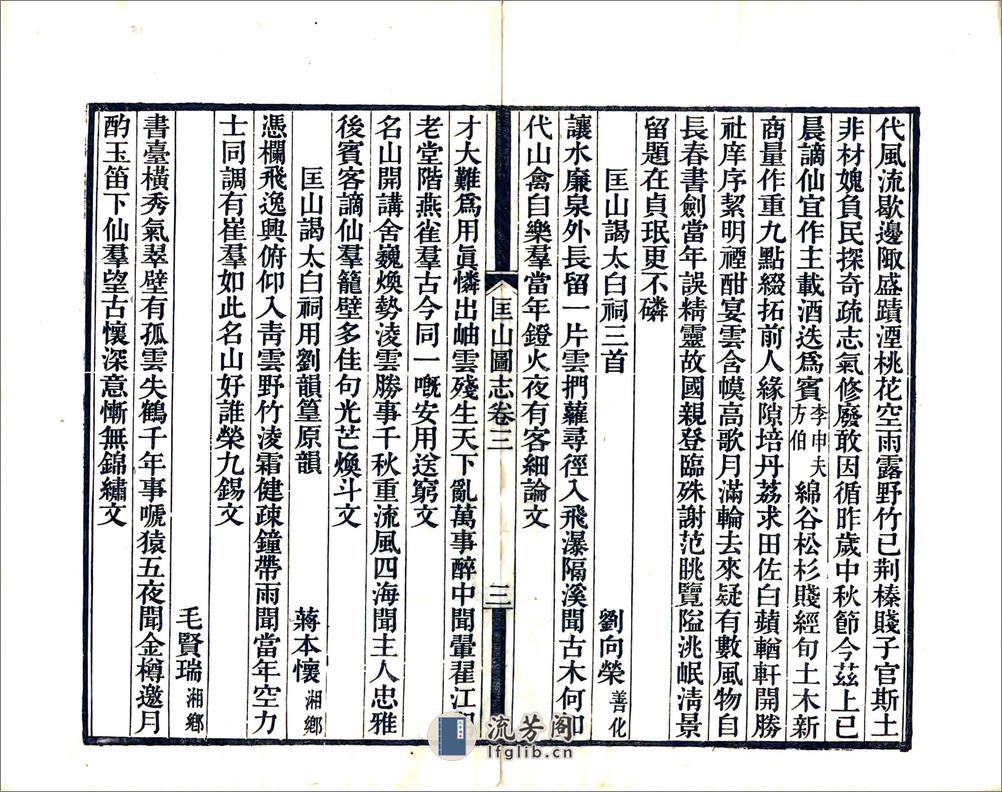 代風流歇邊陬盛蹟湮桃花空雨露野竹已荆榛賤子官斯土
非材媿負民探奇疏志氣修廢敢因循昨歲中秋節今茲上巳
晨謫仙宜作主載酒迭爲賓李申夫方伯綿谷松杉賤經旬土木新
商量作重九點綴拓前人緣隙培丹荔求田佐白蘋輶軒開勝
社庠序絜明禋酣宴雲含幙高歌月滿輪去來疑有數風物自
長春書劍當年誤精靈故國親登臨殊謝范眺覽隘洮岷淸景
留題在貞珉更不磷
匡山謁太白祠三首
劉向榮善化
讓水廉泉外長留一片雲捫蘿尋徑入飛瀑隔溪聞古木何
代山禽自樂羣當年鐙火夜有客細論文
匡山圖志卷三
三
才大難爲用眞憐出岫雲殘生天下亂萬事醉中聞暈翟江
老堂階燕雀羣古今同一嘅安用送窮文
名山開講舍巍煥勢淩雲勝事千秋重流風四海聞主人忠雅
後賓客謫仙羣籠壁多佳句光芒煥斗文
匡山謁太白祠用劉韻篁原韻
蔣本懷湘鄉
憑欄飛逸興俯仰入靑雲野竹淩霜健疎鐘帶雨聞當年空力
士同調有崔羣如此名山好誰榮九錫文
毛賢瑞湘鄉
書臺橫秀氣翠壁有孤雲失鶴千年事嗁猿五夜聞金樽邀月
酌玉笛下仙羣望古懷深意慚無錦繡文
流芳阁
lfglib.cn